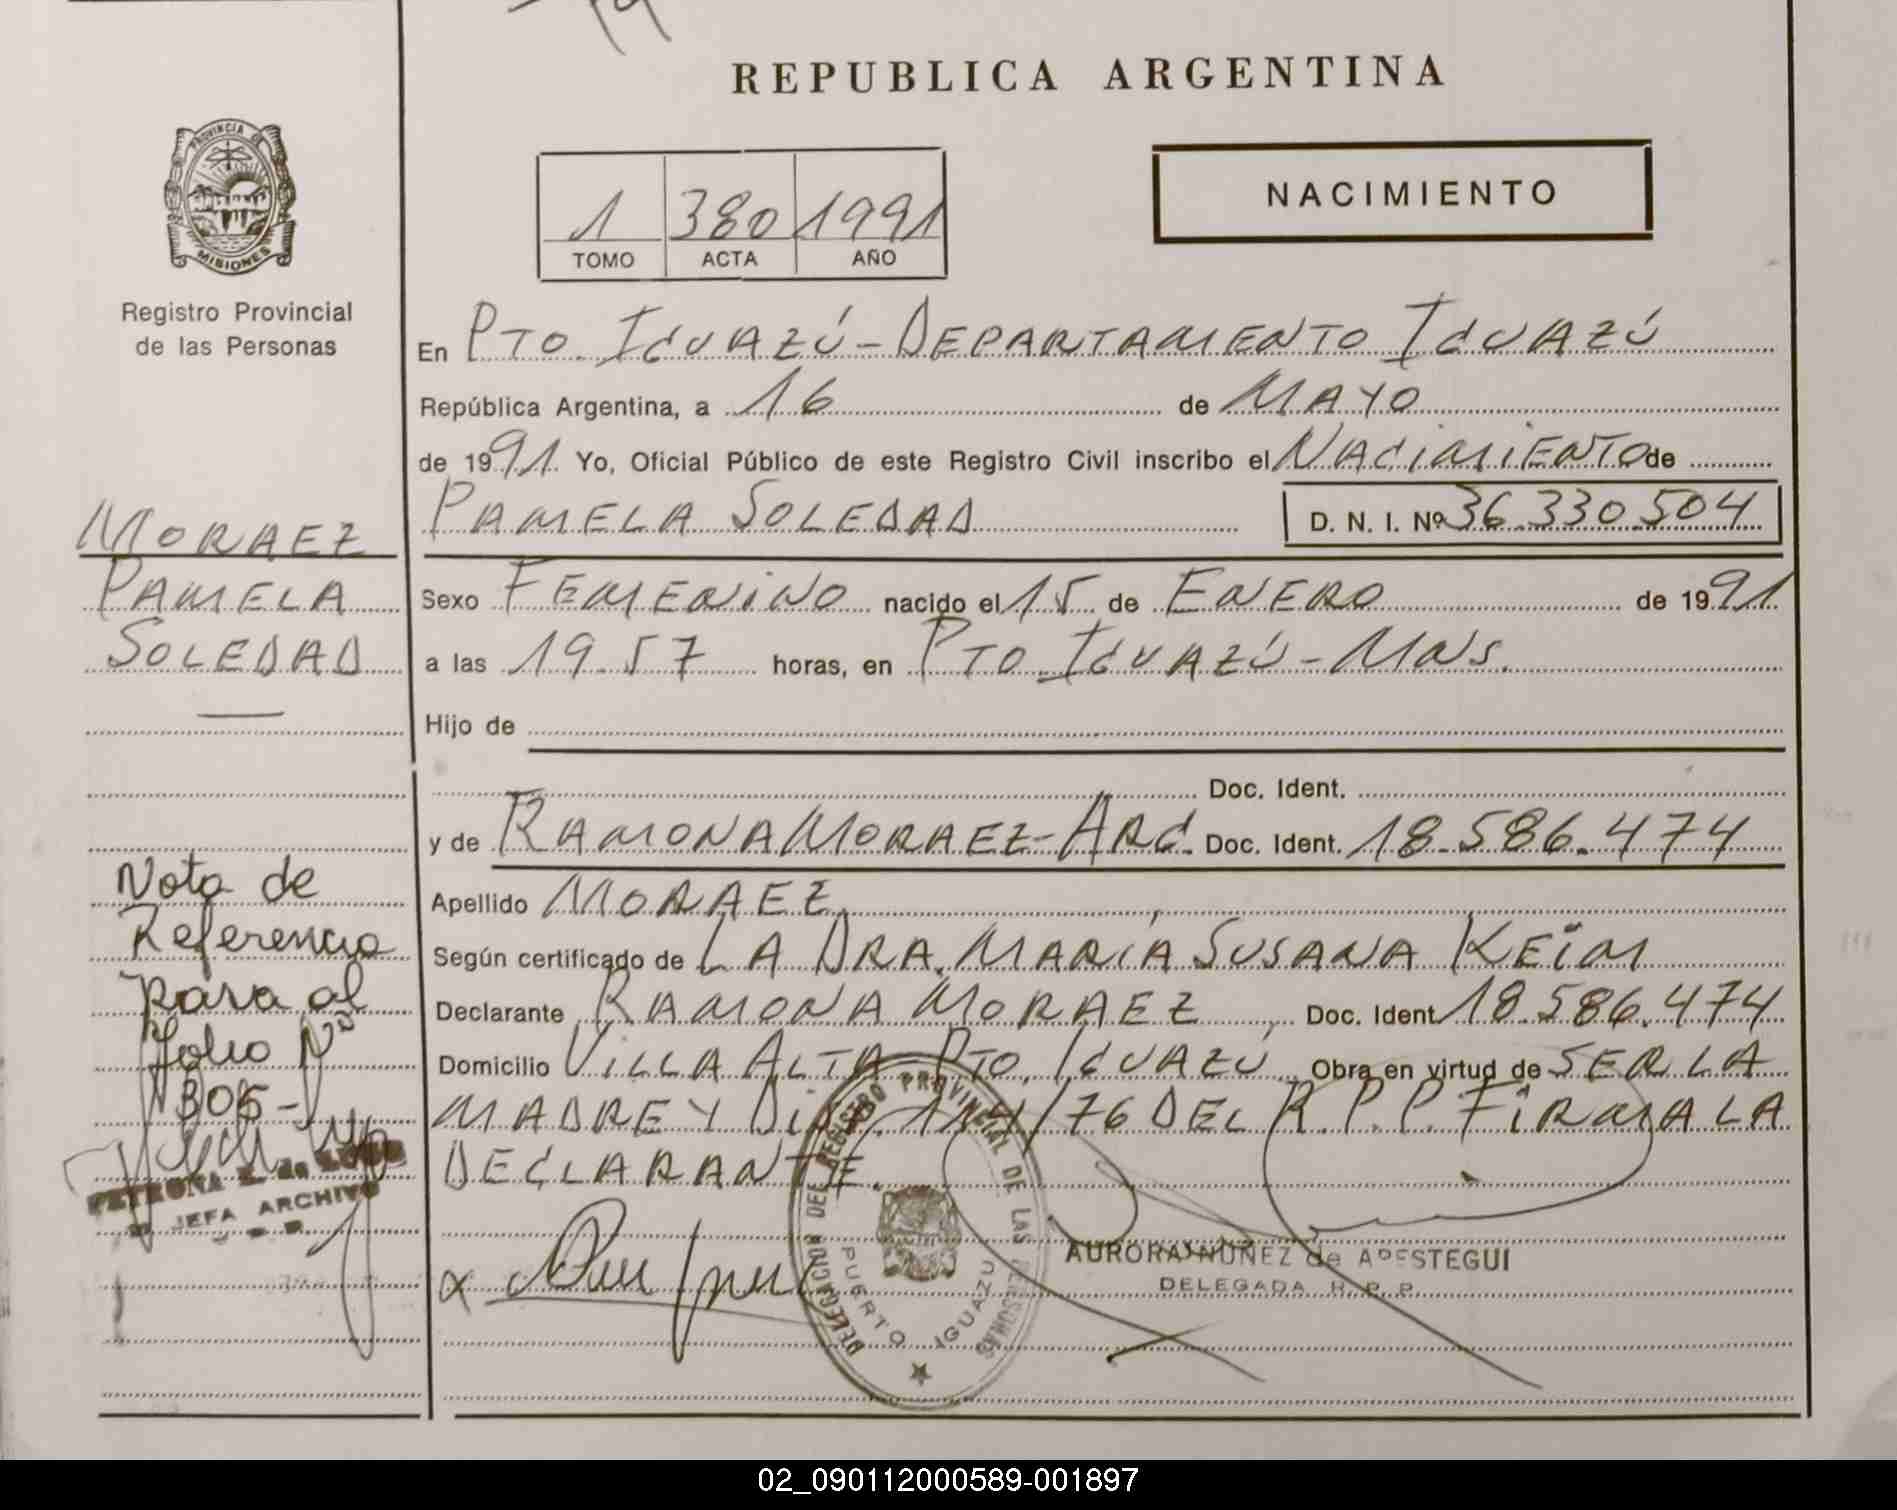 REPUBLICA ARGENTINA
PROVINCIA DE
MISIONES
Registro Provincial
de las Personas
1 380 1991
TOMO ACTA AÑO
NACIMIENTO
En PTO. IGUAZÚ - DEPARTAMENTO IGUAZÚ
República Argentina, a 16 de MAYO
de 1991. Yo, Oficial Público de este Registro Civil inscribo el NACIMIENTO de
PAMELA SOLEDAD D. N. I. Nº 36.330.504
MORAEZ
PAMELA
SOLEDAD
Sexo FEMENINO nacido el 15 de ENERO de 1991
a las 19.57 horas, en PTO. IGUAZÚ - MNS.
Hijo de
Doc. Ident.
y de RAMONA MORAEZ - ARG. Doc. Ident. 18.586.474
Apellido MORAEZ
Según certificado de LA DRA. MARÍA SUSANA KEIM
Declarante RAMONA MORAEZ Doc. Ident 18.586.474
Domicilio VILLA ALTA PTO. IGUAZÚ Obra en virtud de SER LA
MADRE Y /76 DEL R.P.P. FIRMA LA
DECLARANTE.
Nota de
Referencia
para al
folio Nº
305 -
PETRONA de
JEFA ARCHIVO
DELEGACION DEL REGISTRO PROVINCIAL DE LAS PERSONAS
PUERTO IGUAZU
AURORA NUÑEZ de APESTEGUI
DELEGADA R. P. P.
02_090112000589-001897